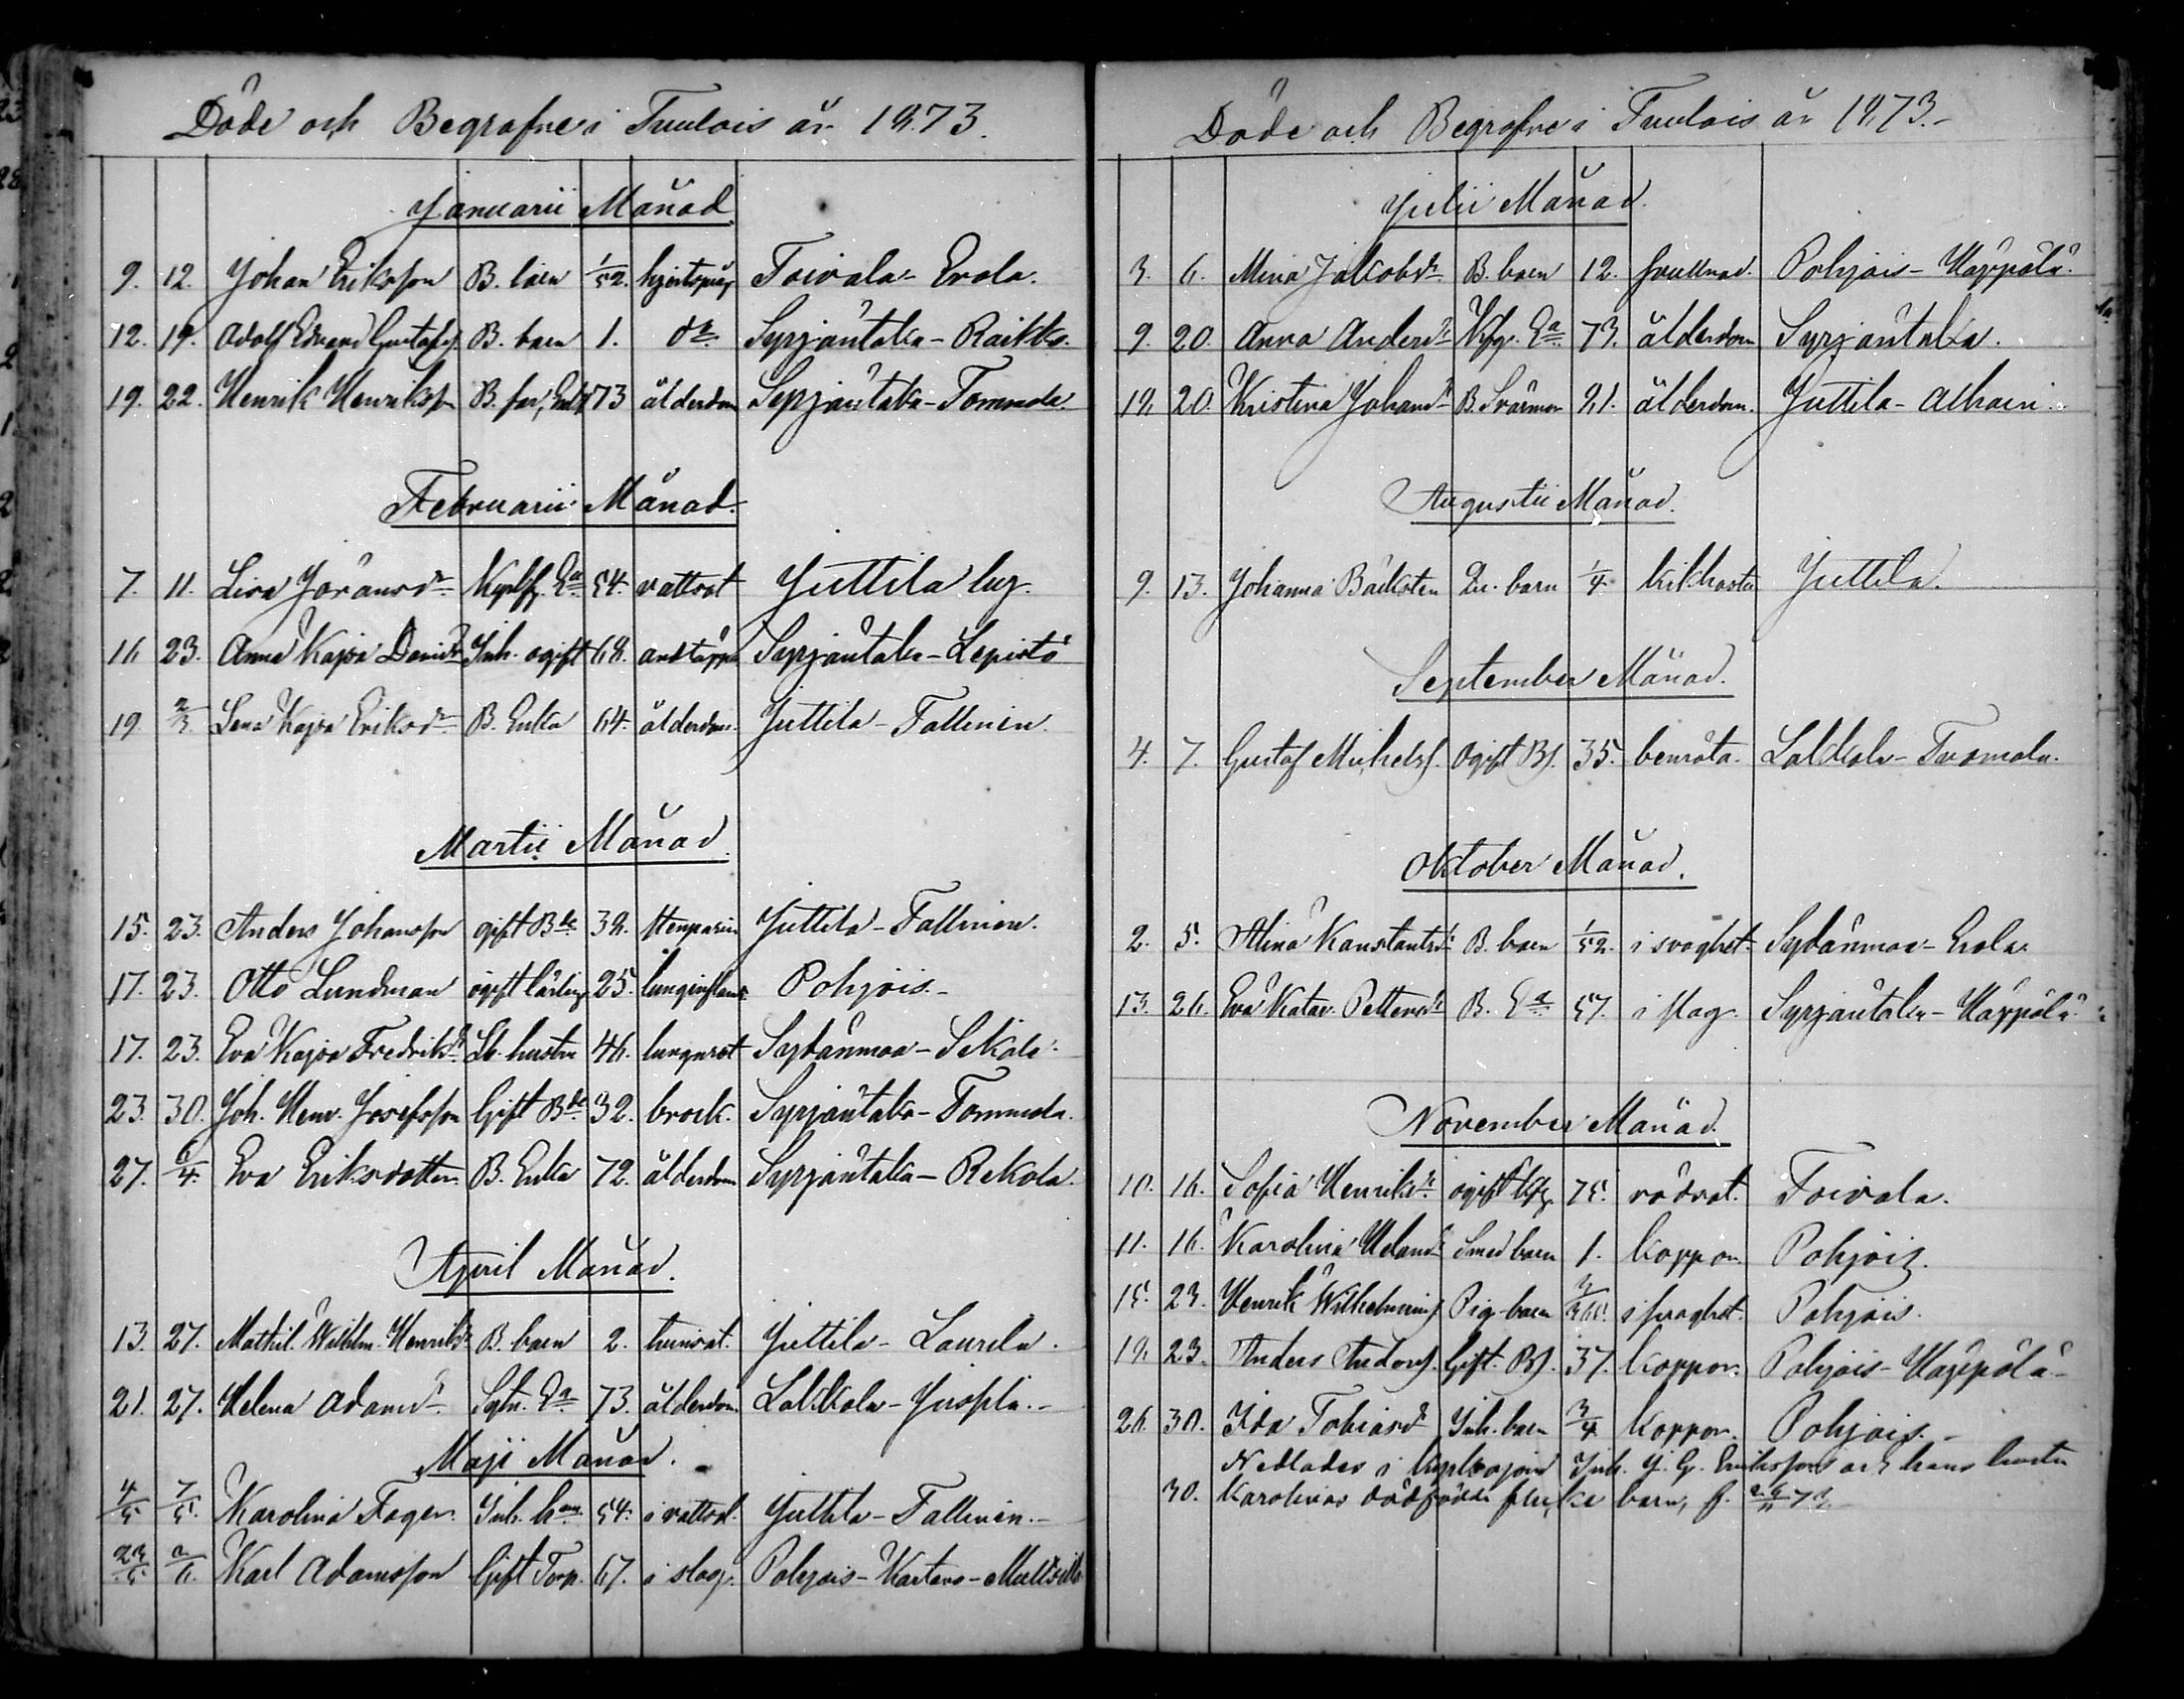 Döde och Begrafne i Tuulois år 1873.
Januarii Månad
9. 12. Johan Eriksson B. barn 1/52. hjertspru Toivola - Erola.
12. 19. Adolf Edvard Gustafss. B. barn 1. do Syrjäntaka - Raikko.
19. 22. Henrik Henrikss. B. far, Enkl. 73 ålderdom Syrjäntaka - Tommola.
Februarii Månad.
7. 11. Lisa Jöransdr 54. vattsot Juttila
16 23. Anna Kajsa Davidsdr Inh. ogift 68. andtäppa Syrjäntaka - Lepistö
19 2/3 Lena Kajsa Eriksdr B. Enka 64. ålderdom. Juttila - Tallinen.
Martii Månad.
15. 23. Anders Johansson gift Bde 38. Juttila - Tallinen.
17. 23. Otto Lundman ogift lärling 25. lunginflam. Pohjois. -
17. 23. Eva Kajsa Fredriksdr Sb. hustru 46. lungsot Sydänmaa - Sikala.
23. 30. Joh. Henr. Josefsson Gift Bde 32. brock. Syrjäntaka - Tommola.
27. 6/4. Eva Eriksdotter B. Enka 72. ålderdom Syrjäntaka - Rekola.
April Månad.
13. 27. Mathil. Wilhelm. Henriksdr B. barn 2. tvinsot. Juttila - Laurila.
21. 27. Helena Adamsdr Sytn. Ea 73. ålderdom. Lalkkola - Juspla. -
Maji Månad.
4/5 7/5. Karolina Fager. Inh. h 54. i vattsot. Juttila - Tallinen. -
23/5 2/6. Karl Adamsson Gift Torp. 67. i slag. Pohjois - Kartano -
Döde och Begrafne i Tuulois år 1873. -
Julii Månad.
3. 6. Mina Jakobsdr B. barn 12. drunknad. Pohjois - Häppölä.
9. 20. Anna Andersdr Ea 73. ålderdom Syrjäntaka.
18. 20. Kristina Johansdr B. Svärmor 81. ålderdom. Juttila - Alhain.
Augustii Månad.
9. 13. Johanna Bäcksten barn 1/4. kikhosta Juttila.
September Månad.
4. 7. Gustaf Michelss. Ogift Bs. 35. benröta. Lalkkola - Tuomola.
Oktober Månad.
2. 5. Alina Konstantsdr B. barn 1/52. i svaghet. Sydänmaa - Erola
13. 26. Eva Katar. Pettersdr B. Ea 57. i slag. Syrjäntaka - Häppölä
November Månad.
10. 16. Sofia Henriksdr ogift 75. rödsot. Toivola.
11. 16. Karolina Helandr Smed barn 1. koppor. Pohjois.
15. 23. Henrik Wilhelmins. Pig. barn 2/365. i svaghet. Pohjois.
19. 23. Anders Anderss. Gift Bs. 37. koppor. Pohjois - Häppölä -
26. 30. Ida Tobiasdr Inh. barn 3/4 koppor. Pohjois. -
Nedlades i Inh. J. G. Erikssons och hans hustru
30. Karolinas dödfödde flicke barn, f.